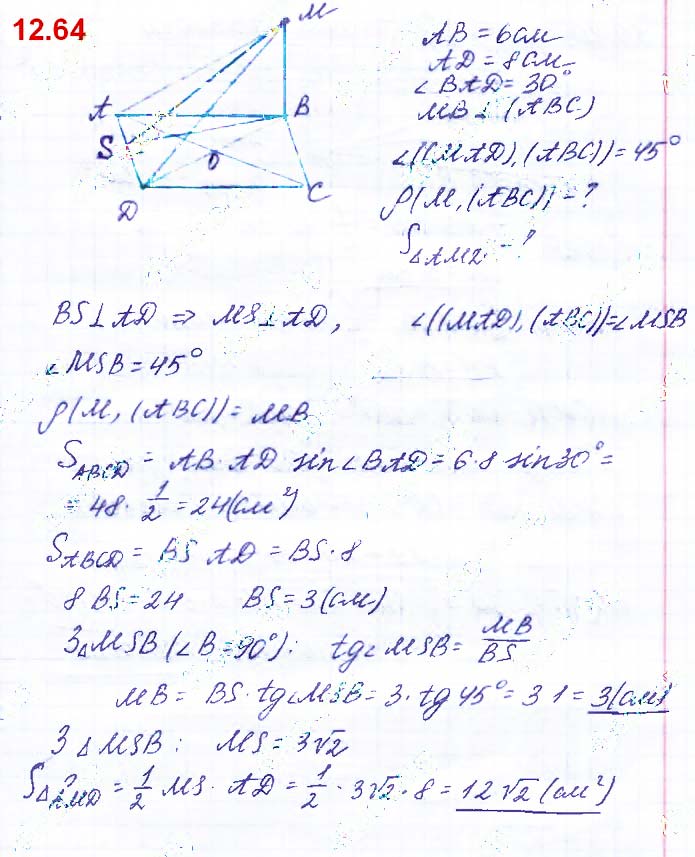 12.64
M
A
B
S
O
D
C
AB = 6см
AD = 8см
∠BAD = 30°
MB ⊥ (ABC)
∠((MAD), (ABC)) = 45°
ρ(M, (ABC)) - ?
S△AMD - ?
BS ⊥ AD ⇒ MS ⊥ AD, ∠((MAD), (ABC)) = ∠MSB
∠MSB = 45°
ρ(M, (ABC)) = MB
S_ABCD = AB · AD sin∠BAD = 6·8 sin30° =
= 48 · 1/2 = 24(см²)
S_ABCD = BS AD = BS·8
8 BS = 24 BS = 3(см)
З △MSB (∠B = 90°): tg∠MSB = MB/BS
MB = BS·tg∠MSB = 3·tg45° = 3 1 = 3(см)
З △MSB: MS = 3√2
S△AMD = 1/2 MS · AD = 1/2 · 3√2 · 8 = 12√2 (см²)